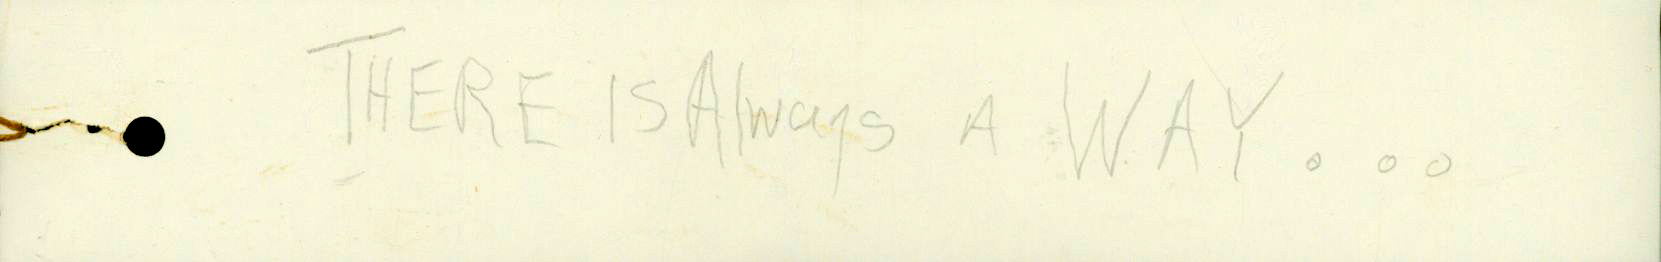 THERE IS Always A WAY...